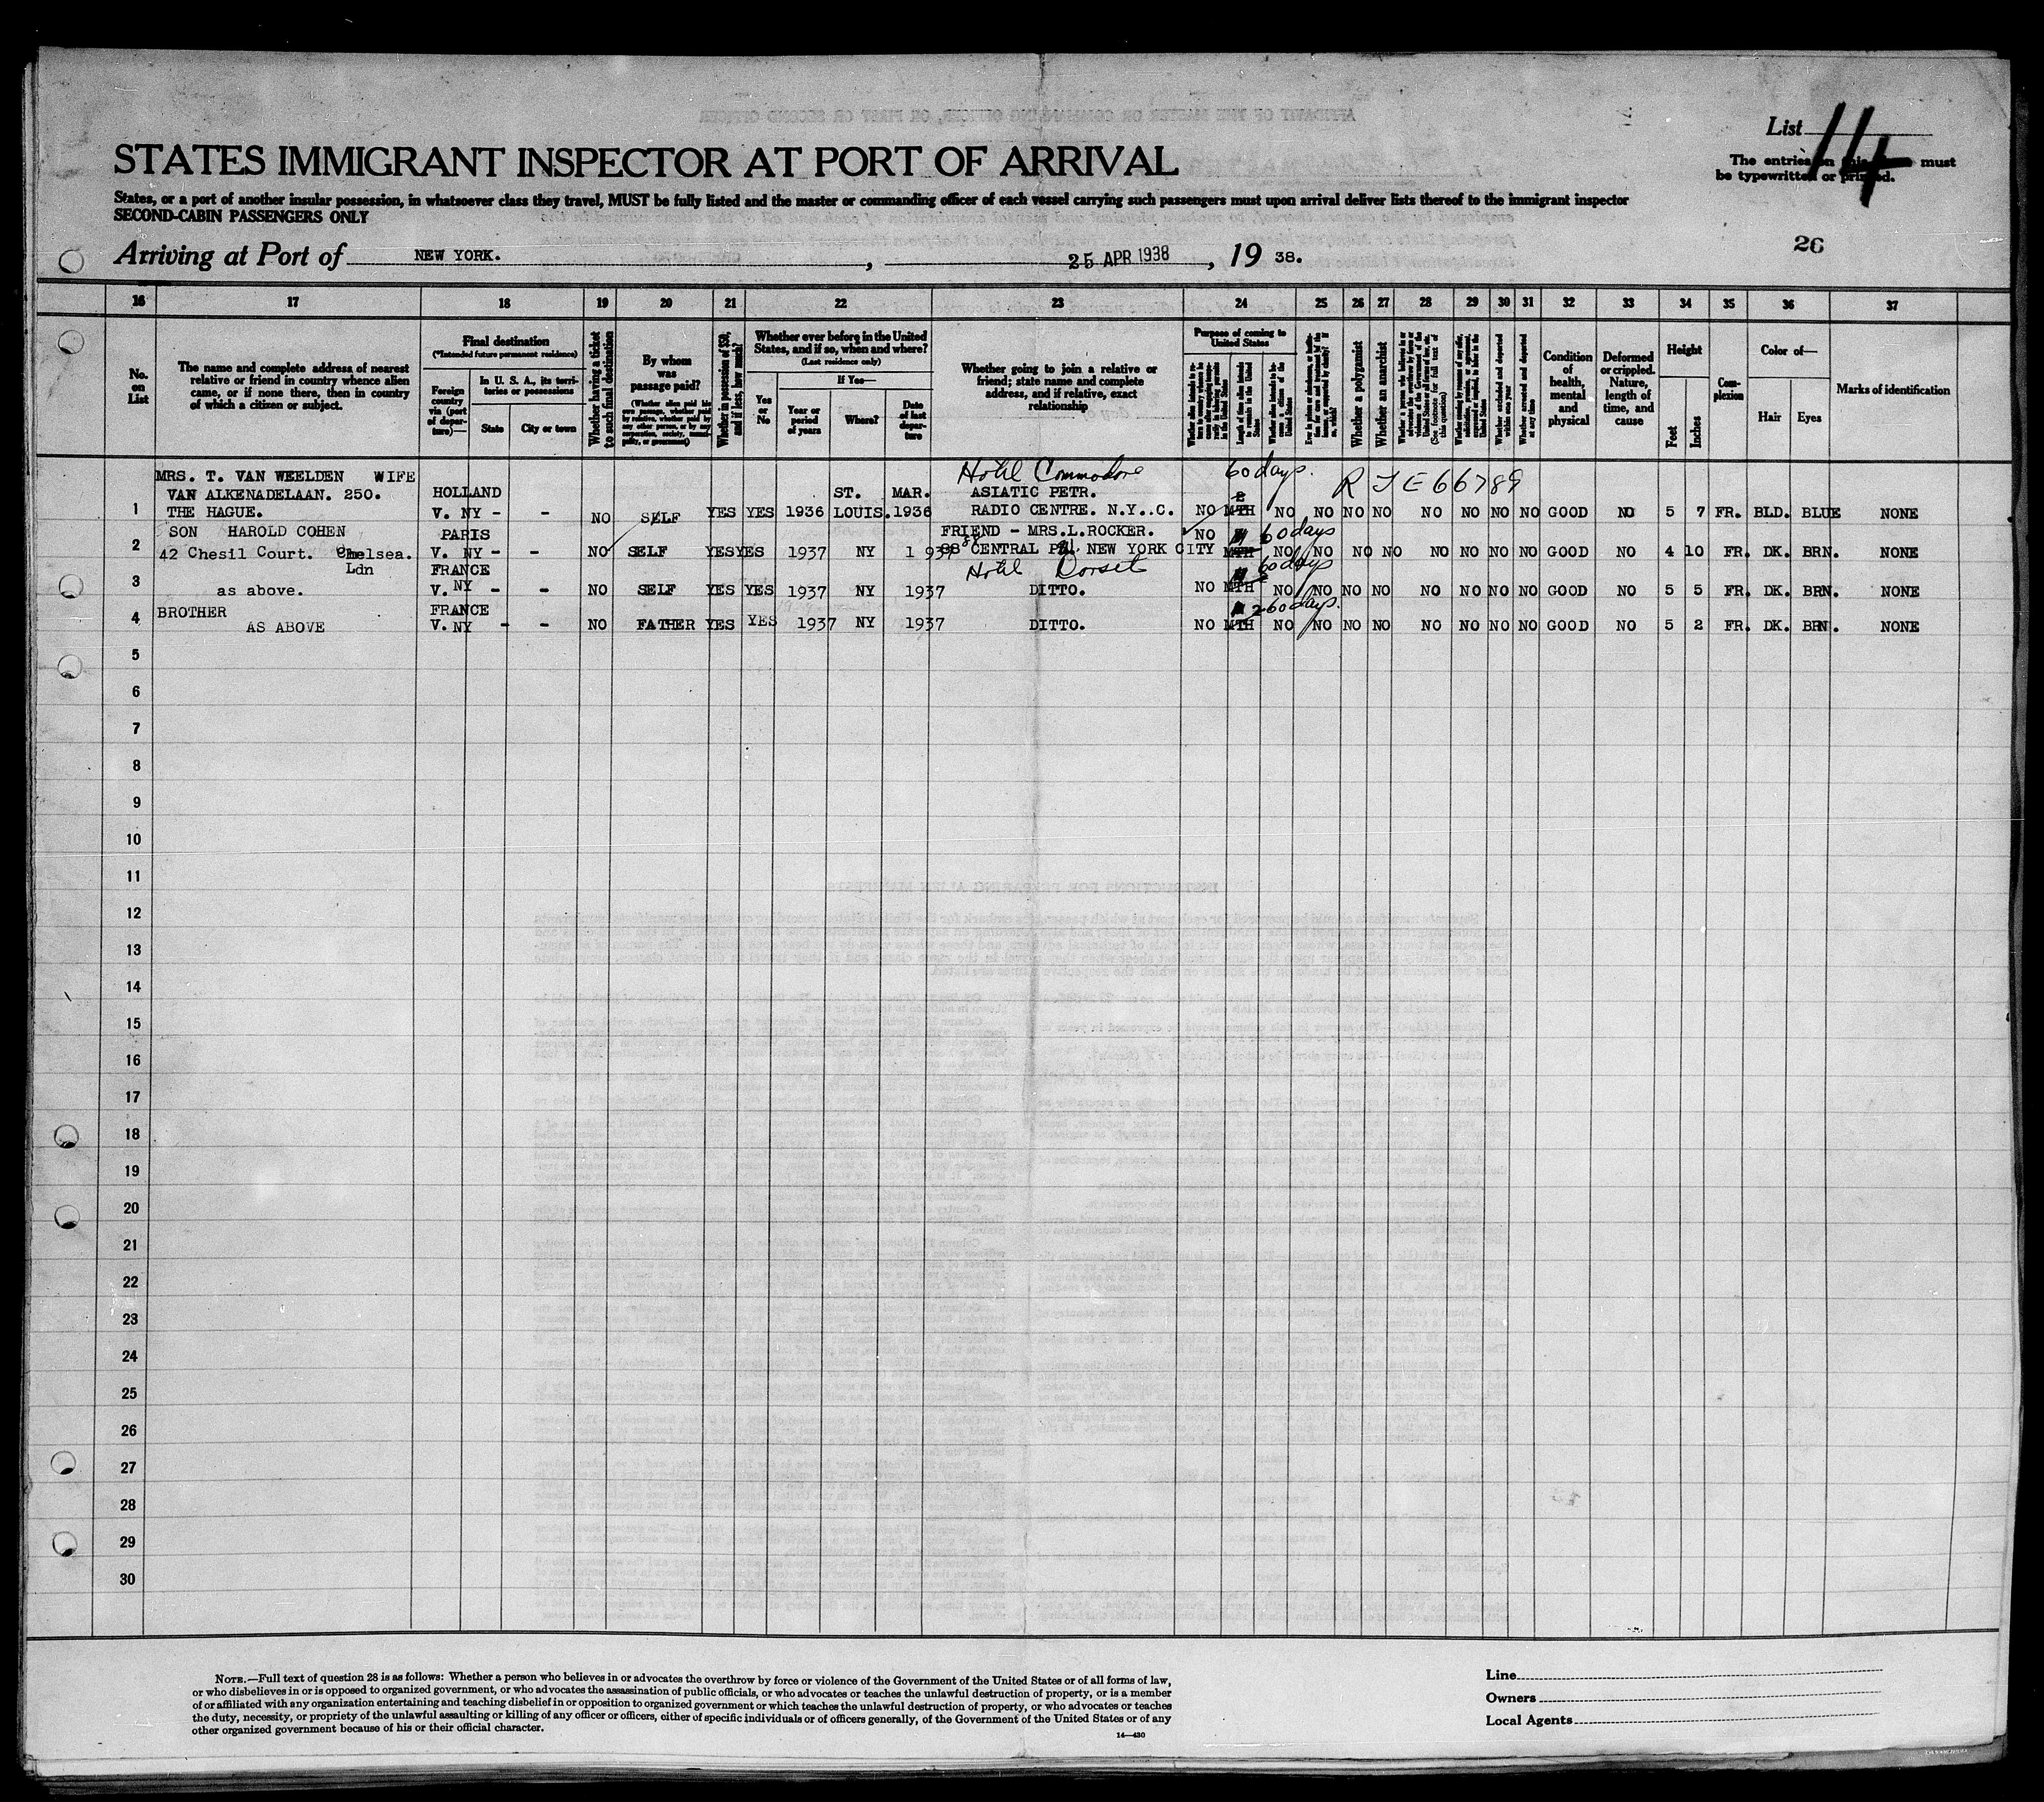 List 14
STATES IMMIGRANT INSPECTOR AT PORT OF ARRIVAL
The entries on this must
be typewritten or printed.
States, or a port of another insular possession, in whatsoever class they travel, MUST be fully listed and the master or commanding officer of each vessel carrying such passengers must upon arrival deliver lists thereof to the immigrant inspector
SECOND-CABIN PASSENGERS ONLY
26
Arriving at Port of NEW YORK. , 25 APR 1938 , 19 38.
16 17 18 19 20 21 22 23 24 25 26 27 28 29 30 31 32 33 34 35 36 37
No. on List
The name and complete address of nearest
relative or friend in country whence alien
came, or if none there, then in country
of which a citizen or subject.
Final destination
(*Intended future permanent residence)
Foreign country via (port of departure)—
In U. S. A., its territories or possessions
State
City or town
Whether having a ticket to such final destination
By whom was passage paid?
(Whether alien paid his own passage, whether paid by relative, whether paid by any other person, or by any corporation, society, municipality, or government)
Whether in possession of $50, and if less, how much?
Whether ever before in the United States, and if so, when and where?
(Last residence only)
Yes or No
If Yes—
Year or period of years
Where?
Date of last departure
Whether going to join a relative or
friend; state name and complete
address, and if relative, exact
relationship
Purpose of coming to United States
Length of time alien intends to remain in the United States
Whether alien intends to become a citizen of the United States
Whether a polygamist
Whether an anarchist
Whether excluded and deported within one year
Whether arrested and deported at any time
Condition of health, mental and physical
Deformed or crippled. Nature, length of time, and cause
Height
Feet
Inches
Complexion
Color of—
Hair
Eyes
Marks of identification
MRS. T. VAN WEELDEN WIFE Hotel Commodore 60 days. R I E 66789
VAN ALKENADELAAN. 250. HOLLAND ST. MAR. ASIATIC PETR.
1 THE HAGUE. V. NY - - NO SELF YES YES 1936 LOUIS. 1936 RADIO CENTRE. N.Y..C. NO MTH NO NO NO NO NO NO NO NO GOOD NO 5 7 FR. BLD. BLUE NONE
SON HAROLD COHEN PARIS FRIEND - MRS.L.ROCKER. NO 60 days
2 42 Chesil Court. Chelsea. V. NY - - NO SELF YES YES 1937 NY 1937 88 CENTRAL PK. NEW YORK CITY MTH NO NO NO NO NO NO NO NO GOOD NO 4 10 FR. DK. BRN. NONE
Ldn FRANCE Hotel Dorset 60 days
3 as above. V. NY - - NO SELF YES YES 1937 NY 1937 DITTO. NO MTH NO NO NO NO NO NO NO NO GOOD NO 5 5 FR. DK. BRN. NONE
BROTHER FRANCE 60 days.
4 AS ABOVE V. NY - - NO FATHER YES YES 1937 NY 1937 DITTO. NO MTH NO NO NO NO NO NO NO NO GOOD NO 5 2 FR. DK. BRN. NONE
5
6
7
8
9
10
11
12
13
14
15
16
17
18
19
20
21
22
23
24
25
26
27
28
29
30
NOTE.—Full text of question 28 is as follows: Whether a person who believes in or advocates the overthrow by force or violence of the Government of the United States or of all forms of law,
or who disbelieves in or is opposed to organized government, or who advocates the assassination of public officials, or who advocates or teaches the unlawful destruction of property, or is a member
of or affiliated with any organization entertaining and teaching disbelief in or opposition to organized government or which teaches the unlawful destruction of property, or who advocates or teaches
the duty, necessity, or propriety of the unlawful assaulting or killing of any officer or officers, either of specific individuals or of officers generally, of the Government of the United States or of any
other organized government because of his or their official character.
14—430
Line
Owners
Local Agents